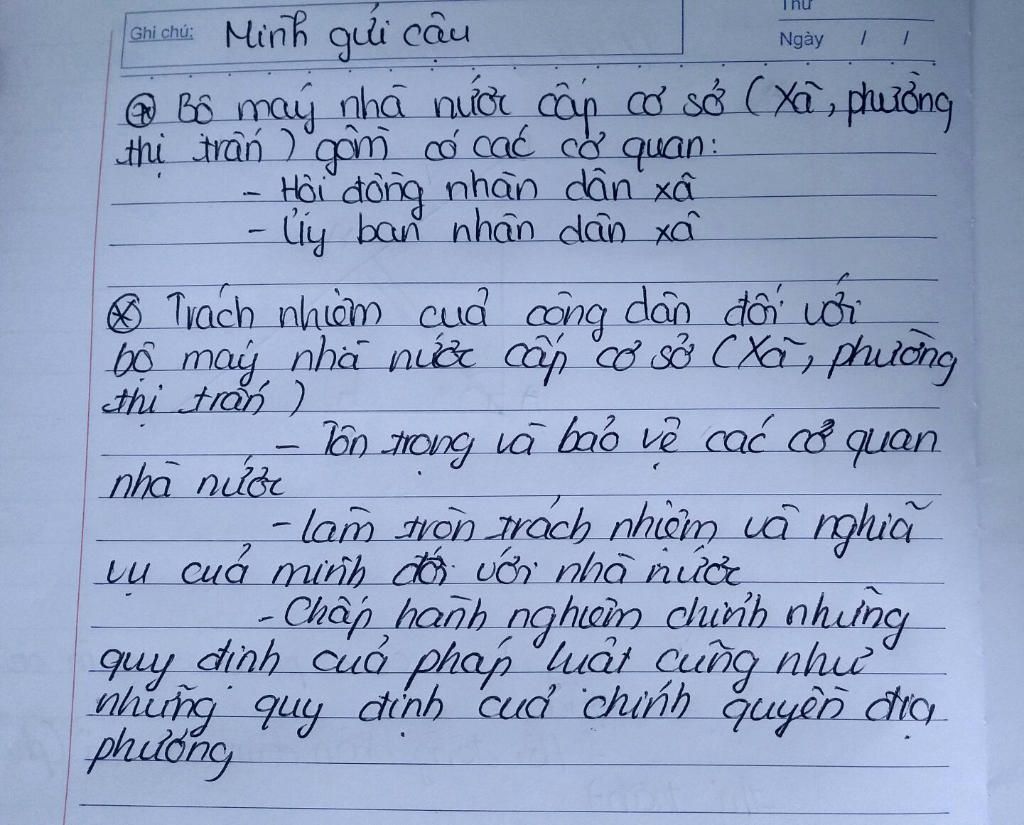 Ghi chú: Mình gửi cậu
Thứ
Ngày / /
⊛ Bộ máy nhà nước cấp cơ sở (Xã, phường
thị trấn) gồm có các cơ quan:
- Hội đồng nhân dân xã
- Ủy ban nhân dân xã
⊛ Trách nhiệm của công dân đối với
bộ máy nhà nước cấp cơ sở (Xã, phường
thị trấn)
- Tôn trọng và bảo vệ các cơ quan
nhà nước
- làm tròn trách nhiệm và nghĩa
vụ của mình đối với nhà nước
- Chấp hành nghiêm chỉnh những
quy định của pháp luật cũng như
những quy định của chính quyền địa
phương